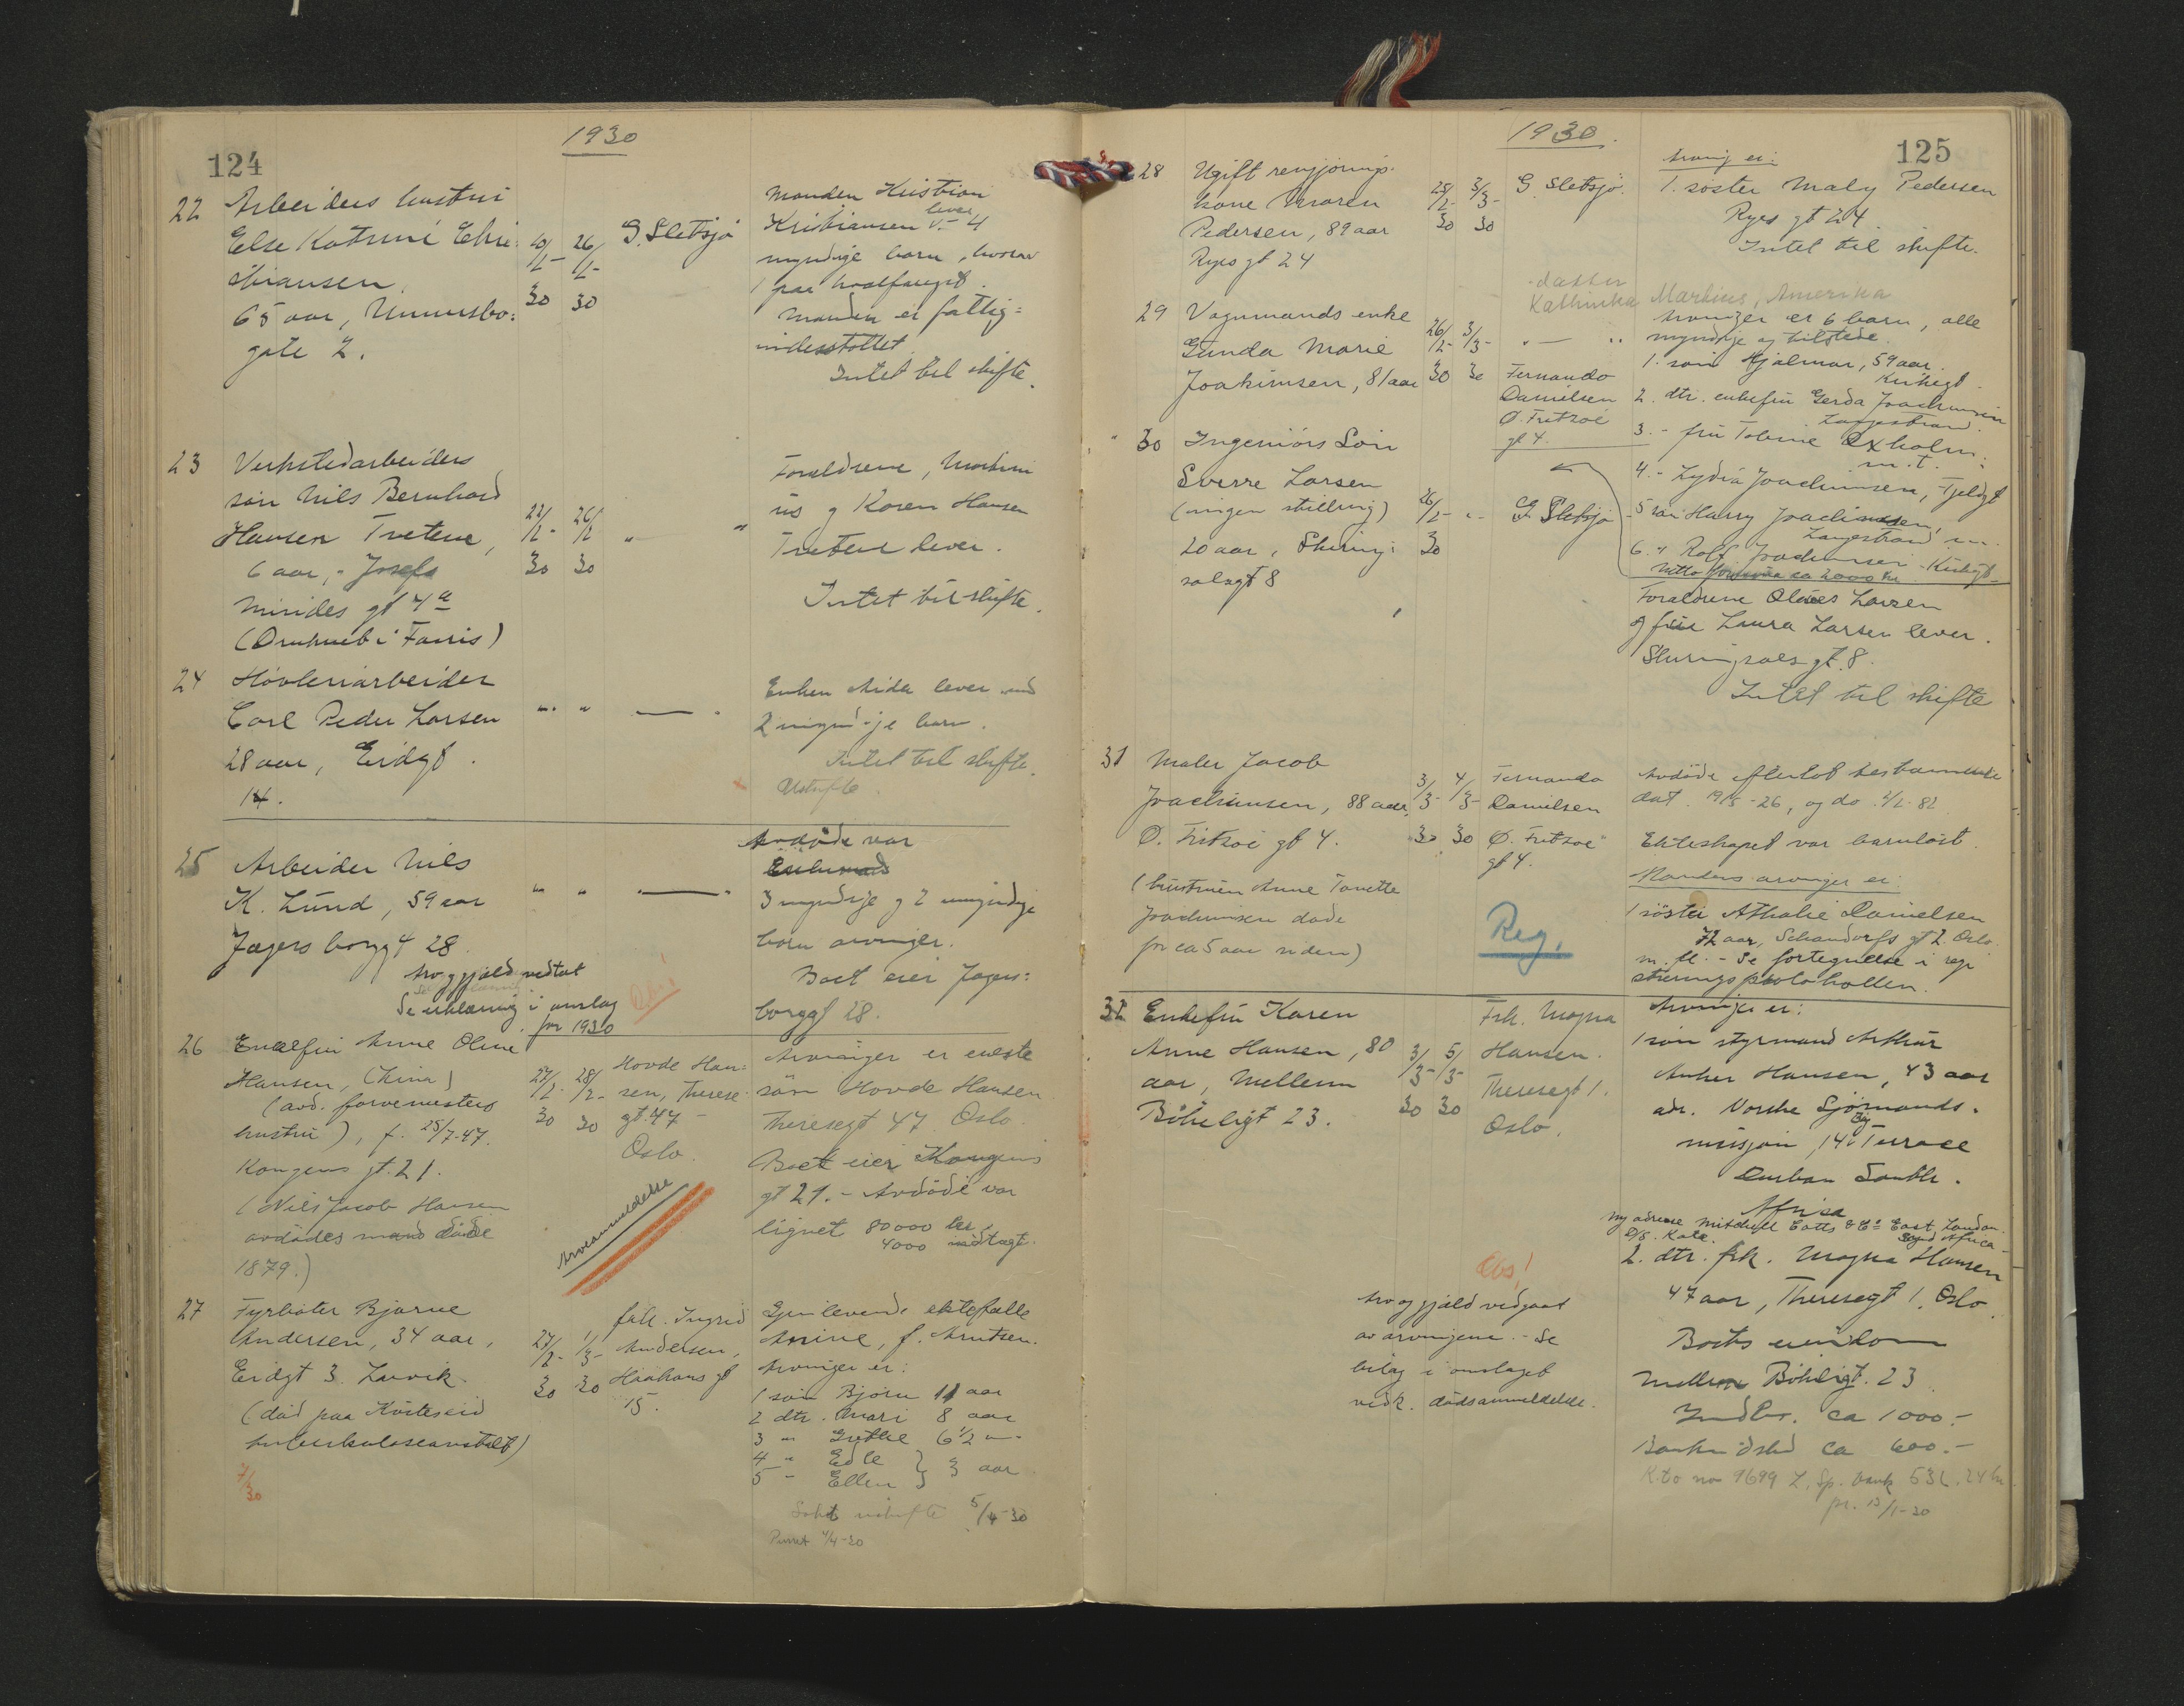 124
1930
22 Arbeiders hustru
Else Katrine Chri-
stiansen.
65 aar,
gate 2.
20/2-30 26/2-30
G. Sletsjø
Manden Kristian
Kristiansen lever - 4
myndige barn, hvorav
1 paa hvalfangst.
Manden er fattig-
understøttet.
Intet til skifte.
23 Verkstedarbeiders
søn Nils Bernhard
Hansen Tvetene,
6 aar, Josefa
Mindes gt 4a
(Druknet i Farris)
22/2-30 26/2-30
" — "
Forældrene, Martin
us og Karen Hansen
Tvetene lever.
Intet til skifte.
24 Høvleriarbeider
Carl Peder Larsen
28 aar, Eidgt.
14.
" " — "
Enken Aida lever med
2 umyndige barn.
Intet til skifte.
Uskifte.
25 Arbeider Nils
K. Lund, 59 aar
Jegersborggt 28.
" " — "
Avdøde var
Enkemand
3 myndige og 2 umyndige
barn arvinger.
Boet eier Jegers-
borggt 28.
Arv og gjæld vedtat
Se erklæring i omslag
for 1930
Obs!
26 Enkefru Anne Oline
Hansen, (China)
(avd. farvemesters
hustru), f. 25/7-47.
Kongens gt. 21.
(Nils Jacob Hansen
avdødes mand døde
1879.)
27/2-30 28/2-30
Hovde Han-
sen, Therese-
gt. 47 -
Oslo.
Arveanmeldelse
Arvinger er eneste
søn Hovde Hansen
Theresegt 47 Oslo.
Boet eier Kongens
gt 21. - Avdøde var
lignet 80000 kr
4000 indtægt.
27 Fyrbøter Bjarne
Andersen, 34 aar,
Eidgt 3. Larvik
(død paa Kosteseid
tuberkuloseanstalt)
27/2-30 1/3-30
frk. Ingrid
Andersen,
Haakons gt
15.
Gjenlevende ektefælle
Anine, f. Knutsen.
Arvinger er:
1 søn Bjørn 11 aar
2 dtr. Mari 8 aar
3 " Grethe 6 1/2 "
4 " Edle } 3 aar
5 " Ellen
7/30
Søkt uskifte 5/4-30
Purret 4/4-30
1930.
125
28 Ugift rengjørings-
kone Maren
Pedersen, 89 aar
Ryes gt 24
25/2-30 3/3-30
G. Sletsjø.
Arving er:
1. søster Maly Pedersen
Ryes gt 24.
Intet til skifte.
datter
Kathinka Martins, Amerika
29 Vognmands enke
Gunda Marie
Joakimsen, 81 aar
26/2-30 3/3-30
" — "
Fernanda
Danielsen
Ø. Fritzøe
gt 4.
Arvinger er 6 barn, alle
myndige og tilstede.
1. søn Hjalmar, 59 aar.
Kirkegt.
2. dtr. enkefru Gerda Joachimsen
Langestrand.
3. - fru Tobine Oxholm.
m.t.
4. - Lydia Joachimsen, Fjeldgt
5 søn Harry Joachimsen,
Langestrand
6. " Rolf Joachimsen - Kirkegt.
Netto formue ca 2000 kr.
30 Ingeniørs Søn
Sverre Larsen
(ingen stilling)
20 aar, Skrings-
salsgt 8
26/2-30 "
G. Sletsjø
Forældrene Olaves Larsen
og frue Laura Larsen lever.
Skiringsalsgt. 8.
Intet til skifte
31 Maler Jacob
Joachimsen, 88 aar.
Ø. Fritzøe gt 4.
(hustruen Anne Tonette
Joachimsen døde
for ca 5 aar siden)
3/3-30 4/3-30
Fernanda
Danielsen
Ø. Fritzøe
gt 4.
Reg.
Avdøde efterlot testamente
dat. 19/5-26, og do. 2/2-82
Ekteskapet var barnløst.
Mandens arvinger er:
1 søster Athalie Danielsen
72 aar, Schandorfs gt 2. Oslo.
m. fl. - Se fortegnelse i regi
streringsprotokollen.
32 Enkefru Karen
Anne Hansen, 80
aar, Mellem
Bøkeligt 23.
3/3-30 5/3-30
Frk. Magna
Hansen.
Theresegt 1.
Oslo.
Arvinger er:
1 søn styrmand Arthur
Anker Hansen, 43 aar
adr. Norske Sjømands-
misjon, 14 Terrace
Durban South.
Africa
Ny adresse Mitchell Cotts & Co East London.
D/S. Kale. Syd Africa -
2. dtr. frk. Magna Hansen
47 aar, Theresegt 1, Oslo.
Boets eiendom
Mellem Bøkeligt. 23
Indbo. ca 1000.-
Bankindskud ca 600.-
Kto no 9699 L. Sp. bank 532.24 kr
pr. 13/1-30
Obs!
Arv og gjæld vedgaat
av arvingene. - Se
bilag i omslaget
vedk. dødsanmeldelse.